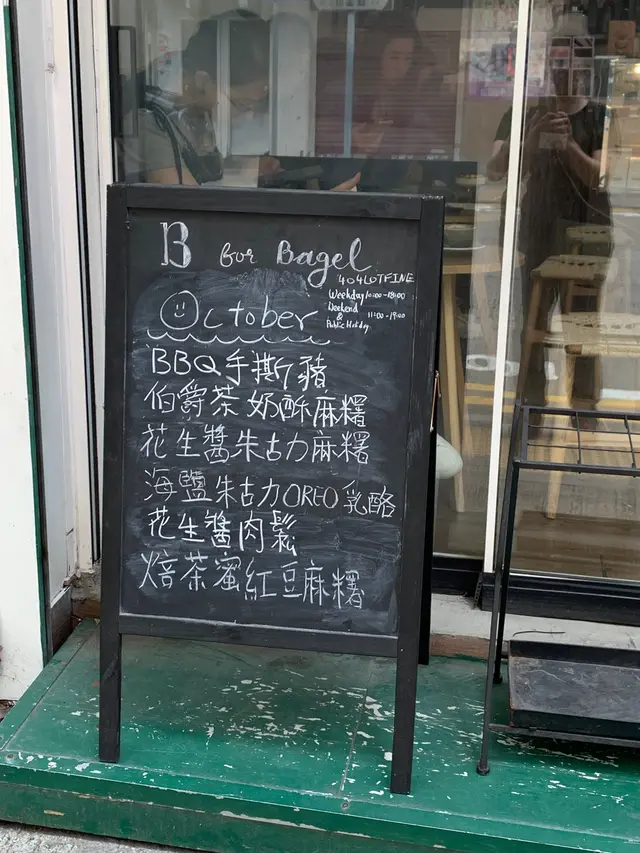 B for Bagel
404LOTFINE
Weekday 10:00-18:00
Weekend
&
11:00-19:00
Public Holiday
October
BBQ手撕豬
伯爵茶奶酥麻糬
花生醬朱古力麻糬
海鹽朱古力OREO乳酪
花生醬肉鬆
焙茶蜜紅豆麻糬